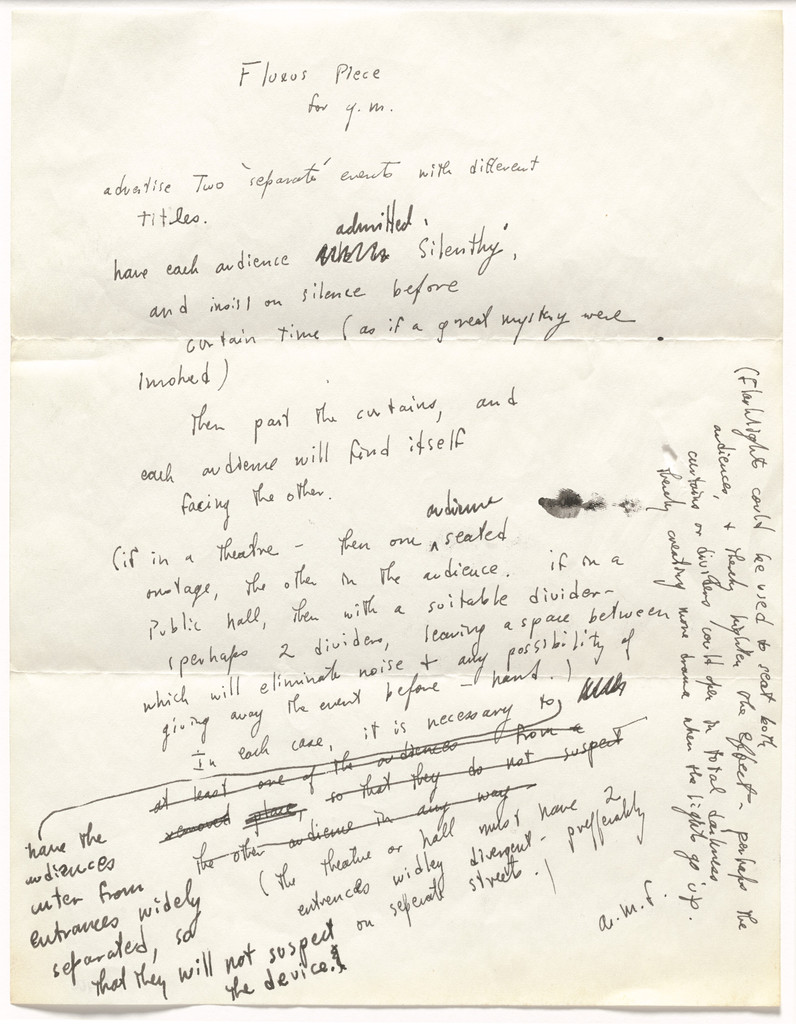 Fluxus Piece
for g.m.
advertise Two "separate" events with different
titles.
admitted
have each audience "Silently",
and insist on silence before
curtain time (as if a great mystery were
involved)
Then part the curtains, and
each audience will find itself
facing the other.
audience
(if in a theatre - then one seated
onstage, the other in the audience. if in a
Public hall, then with a suitable divider-
(perhaps 2 dividers, leaving a space between
which will eliminate noise + any possibility of
giving away the event before-hand.)
In each case, it is necessary to
at least one of the audiences from a
removed place, so that they do not suspect
the other audience in any way
(the theatre or hall must have 2
entrences widley divergent- prefferably
on seperate streets.)
have the
audiences
enter from
entrances widely
separated, so
that they will not suspect
the device.
a.m.f.
(Flashlights could be used to seat both
audiences, + thereby highten the effect - perhaps the
curtains or dividers could open in total darkness
thereby creating more drama when the lights go up.